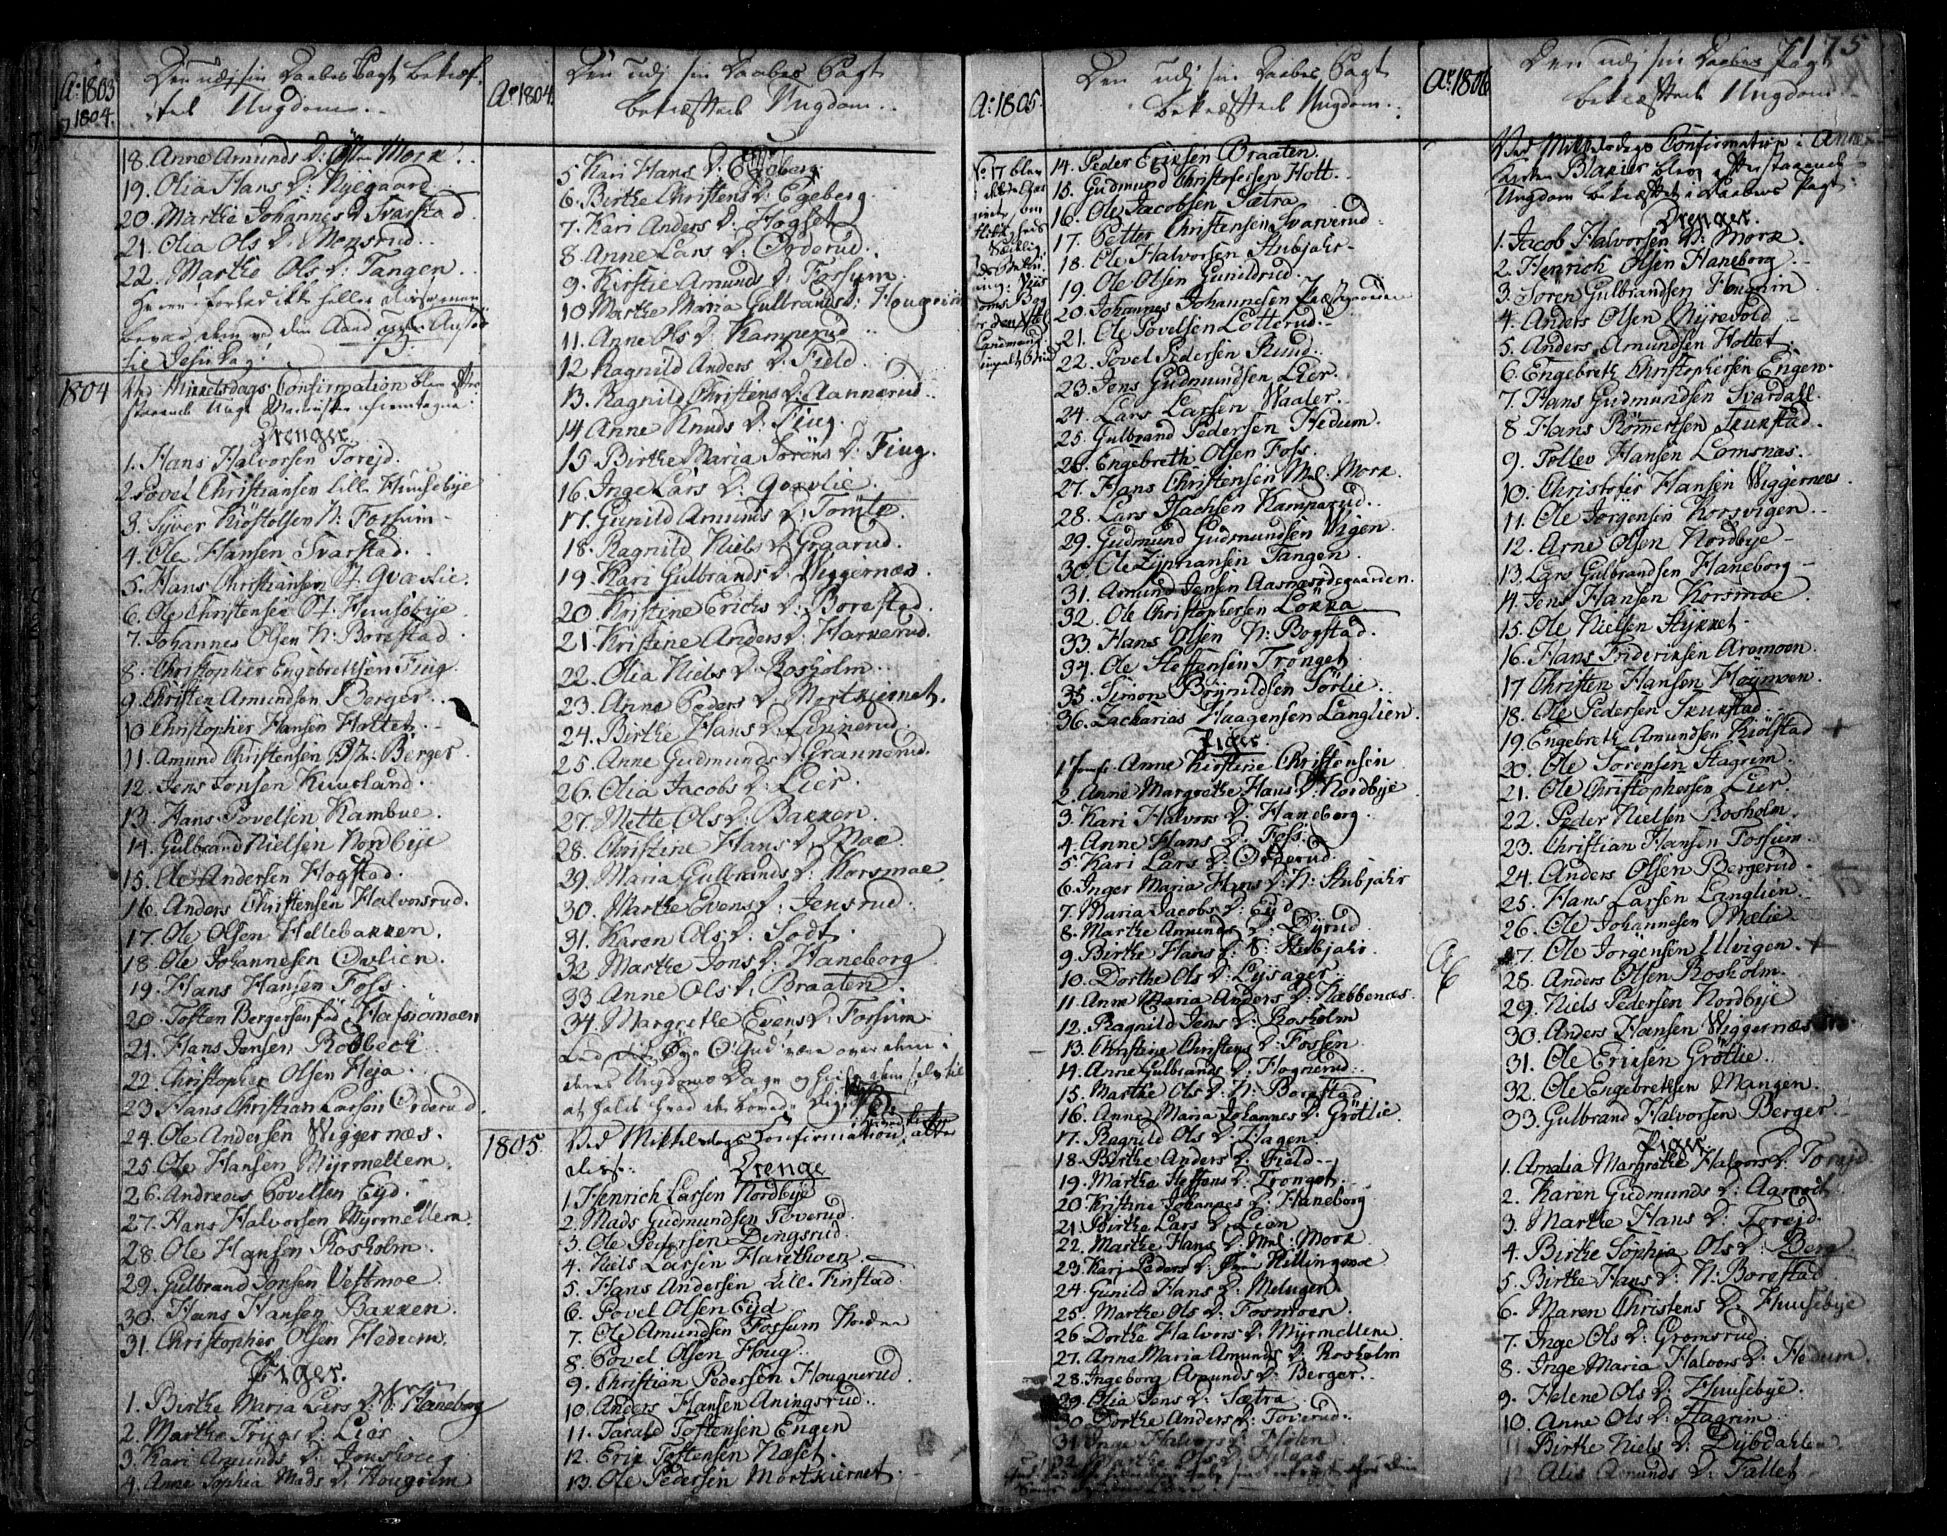 Ao 1803
1804.
Den udj sin Daabes Pagt bekræf-
tet Ungdom.
18. Anne Amunds D: Mork.
19. Olia Hans D: Nyegaard
20. Marthe Johannes D: Svarstad
21. Olia Ols D: Monsrud.
22. Marthe Ols D: Tangen.
til Jesu Dag!
1804
Ved Mikkelsdags Confirmation blev
Drenger.
1. Hans Halvorsen Torejd.
2. Povel Christiansen lille Huusebye
3. Syver Kiöstolsen N: Fossum
4. Ole Hansen Svarstad.
5. Hans Christiansen St. Qvævlie.
6. Ole Christensen St. Huusebye
7. Johannes Olsen N: Borestad
8. Christopher Engebrethsen Ting.
9. Christen Amundsen Berger.
10. Christopher Hansen Hottet.
11. Amund Christensen Berger.
12. Jens Jonsen Kuusland.
13. Hans Povelsen Kambue.
14. Gulbrand Nielsen Nordbye
15. Ole Andersen Hogstad.
16. Anders Christensen Halvorsrud.
17. Ole Olsen Hellebakken.
18. Ole Johannesen Ovlien.
19. Hans Hansen Foss.
20. Tosten Bergersen
21. Hans Jensen Rodbeck
22. Christopher Olsen Heja.
23. Hans Christian Larsen Orderud.
24. Ole Andersen Wiggernæs.
25. Ole Hansen Myrmellem.
26. Andreas Povelsen Eyd.
27. Hans Halvorsen Myrmellem.
28. Ole Hansen Rosholm.
29. Gulbrand Jonsen Vestmoe.
30. Hans Hansen Bakken.
31. Christopher Olsen Hedum.
Piger.
1. Birthe Maria Lars D: S. Haneborg
2. Marthe Trygs D: Lier
3. Kari Amunds D:
4. Anne Sophia Mads D: Hougrim
Ao 1804.
Den udj sin Daabes Pagt
bekræftted Ungdom.
5. Kari Hans D: Egeberg.
6. Birthe Christens D: Egeberg.
7. Kari Anders D: Hogset.
8. Anne Lars D: Orderud.
9. Kirstie Amund D: Fossum.
10. Marthe Maria Gulbrands D: Hougrim
11. Anne Ols D: Kamperud.
12. Ragnild Anders D: Field.
13. Ragnild Christens D: Aannerud.
14. Anne Knuds D: Ting.
15. Birthe Maria Sörens D: Ting.
16. Inge Lars D: Qvævlie.
17. Gunild Amunds D: Tömte.
18. Ragnild Niels D: Ggarud.
19. Kari Gulbrands D: Wiggernæs.
20. Kristine Erichs D: Borestad.
21. Kristine Anders D: Harkerud.
22. Olia Niels D: Rosholm.
23. Anne Peders D: Mortkiernet.
24. Birthe Hans D: Linnerud.
25. Anne Gudmunds D: Grannerud.
26. Olia Jacobs D: Lier.
27. Mette Ols D: Bakken.
28. Christine Hans D: Moe.
29. Maria Gulbrands D: Korsmoe.
30. Marthe Evens D: Jensrud.
31. Karen Ols D: Sodt.
32. Marthe Jons D: Haneborg
33. Anne Ols D: Braaten.
34. Margrethe Evens D: Fossum.
Lad dit Øye O Gud være over dem i
deres Ungdoms Dage og
1805
Ved Mikkelsdags Confirmation
Drenge
1. Henrich Larsen Nordbye
2. Mads Gudmundsen Toverud.
3. Ole Pedersen Dingsrud.
4. Niels Larsen Harethoen
5. Hans Andersen lille Kinstad.
6. Povel Olsen Eyd
7. Ole Amundsen Fossum Nordre
8. Povel Olsen Houg.
9. Christian Pedersen Hougnerud.
10. Anders Hansen Aningsrud.
11. Tarald Tostensen Engen
12. Erik Tostensen Næset.
13. Ole Pedersen Mortkiernet.
Ao 1805.
Den udj sin Daabes Pagt
bekræftted Ungdom.
No 17 blev
14. Peder Eriksen Braaten.
15. Gudmund Christofersen Holt.
16. Ole Jacobsen Sætra.
17. Petter Christensen Svarverud.
18. Ole Halvorsen Stubjahr.
19. Ole Olsen Gunildrud.
20. Johannes Johannesen Præstgaarden
21. Ole Povelsen Lotterud.
22. Povel Pedersen Ruud.
23. Jens Gudmundsen Lier.
24. Lars Larsen Waaler.
25. Gulbrand Pedersen Hedum.
26. Engebreth Olsen Foss.
27. Hans Christensen Mel: Mork.
28. Lars Isachsen Kamperud.
29. Gudmund Gudmundsen Wigen.
30. Ole Zyprianisen Tangen.
31. Amund Jensen Aasnæsødegaarden.
32. Ole Christophersen Løkka
33. Hans Olsen N: Bogstad.
34. Ole Steffensen Tronget.
35. Simon Brynildsen Sörlie.
36. Zacharias Haagensen Langlien.
Piger.
1 Jomfr. Anne Kirstine Christensen
2. Anne Margrethe Hans D: Nordbye
3. Kari Halvors D: Haneborg.
4. Anne Hans D: Foss.
5. Kari Lars D: Orderud.
6. Inger Maria Hans D: N: Stubjahr
7. Maria Jacobs D: Eyd.
8. Marthe Amunds D: Dyrud.
9. Birthe Hans D: S: Stubjahr.
10. Dorthe Ols D: Lysager.
11. Anne Maria Anders D: Næbbenæs.
12. Ragnild Jens D: Rosholm
13. Christine Christens D: Fossen
14. Anne Gulbrands D: Hognerud.
15. Marthe Ols D: N: Borestad
16. Anne Maria Johannes D: Grötlie.
17. Ragnild Ols D: Hagen
18. Birthe Anders D: Field.
19. Marthe Steffens D: Tronget.
20. Kristine Johannes D: Haneborg.
21. Birthe Lars D: Lien
22. Marthe Hans D: Mel: Mork
23. Kari Peders D: Killingmoe
24. Gunild Hans D: Melsigen.
25. Marthe Ols D: Fosmoen.
26. Dorthe Halvors D: Myrmellem.
27. Anne Maria Amunds D: Rosholm
28. Ingeborg Amunds D: Berger.
29. Olia Jens D: Sætra
30. Dorthe Anders D: Toverud.
31. Inge Halvors D: Holen
32. Marthe Ols D:
Ao 1806
175
Den udj sin Daabes Pagt
bekræftted Ungdom
Ved Mikkelsdags Confirmation i Annex
Kirken Blakier blev efterstaaende
Ungdom bekræftet i Daabens Pagt.
Drenger.
1. Jacob Halvorsen N: Mork.
2. Henrich Olsen Haneborg.
3. Sören Gulbrandsen Hougrim
4. Anders Olsen Nyrevold
5. Anders Amundsen Hottet.
6. Engebreth Christophersen Engen.
7. Hans Gudmundsen Svardall.
8. Hans Römmertsen Krukstad.
9. Tollev Hansen Lomsnæs.
10. Christofer Hansen Wiggernæs.
11. Ole Jörgensen Korsvigen.
12. Arne Olsen Nordbye
13. Lars Gulbrandsen Haneborg
14. Jens Hansen Korsmoe.
15. Ole Nielsen Stykket.
16. Hans Frideriksen Aremoen.
17. Christen Hansen Höymoen.
18. Ole Pedersen Krukstad.
19. Engebreth Amundsen Kiölstad
20. Ole Sörensen Hagrim.
21. Ole Christophersen Lier.
22. Peder Nielsen Rosholm.
23. Christian Hansen Fossum.
24. Anders Olsen Bergerud.
25. Hans Larsen Langlien.
26. Ole Johannesen Mælie
27. Ole Jörgensen Ulvigen.
28. Anders Olsen Rosholm.
29. Niels Pedersen Nordbye
30. Anders Hansen Wiggernæs
31. Ole Eriksen Grötlie.
32. Ole Engebrethsen Mangen.
33. Gulbrand Halvorsen Berger.
Piger.
1. Amalia Margrethe Halvors D: Torejd.
2. Karen Gudmunds D: Aarnodt
3. Marthe Hans D: Torejd.
4. Birthe Sophia Ols D: Berg.
5. Birthe Hans D: N: Borestad
6. Maren Christens D: Huusebye
7. Inge Ols D: Gromsrud.
8. Inge Maria Halvors D: Hedum.
9. Helene Ols D: Huusebye.
10. Anne Ols D: Hagrim
11. Birthe Niels D: Dybdahlen
12. Alis Amunds D: Tallet.